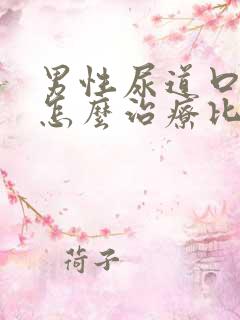 男性尿道口
怎麼治療比
荷子